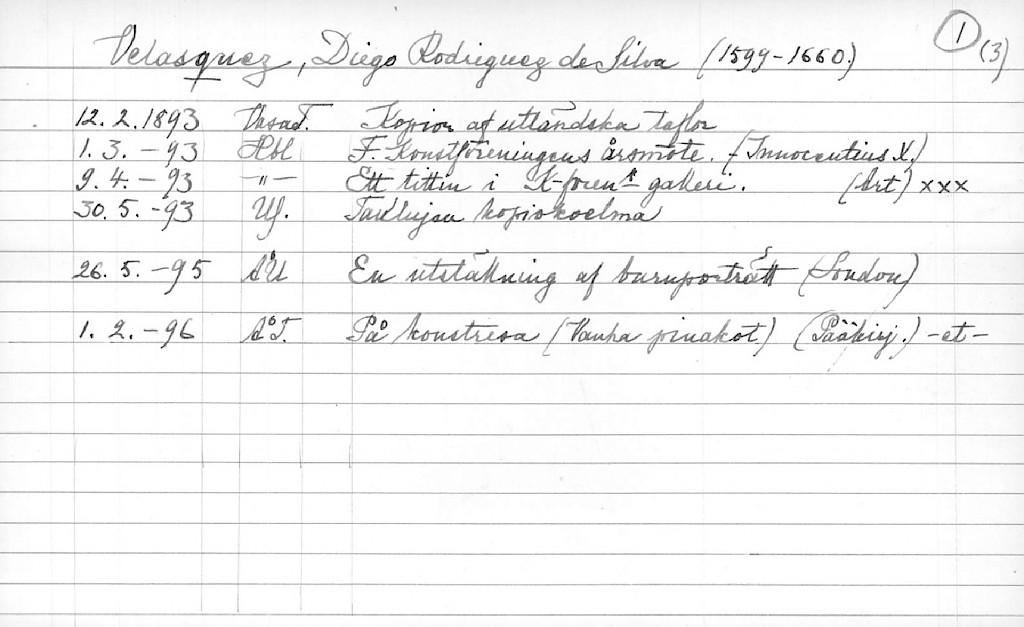 Velasquez, Diego Rodriguez de Silva (1599-1660.) 1 (3)
12. 2. 1893 VasaT. Kopior af utländska taflor
1. 3. - 93 Hbl F. Konstföreningens årsmöte. (Innocentius X.)
9. 4. - 93 -"- Ett titten i K-fören:s galleri. (Art) xxx
30. 5. - 93 US. Taulujen kopiokoelma
26. 5. - 95 ÅU En utställning af barnporträtt (London)
1. 2. - 96 ÅT. På konstresa (Vanha pinakot.) (Pääkirj.) -et-